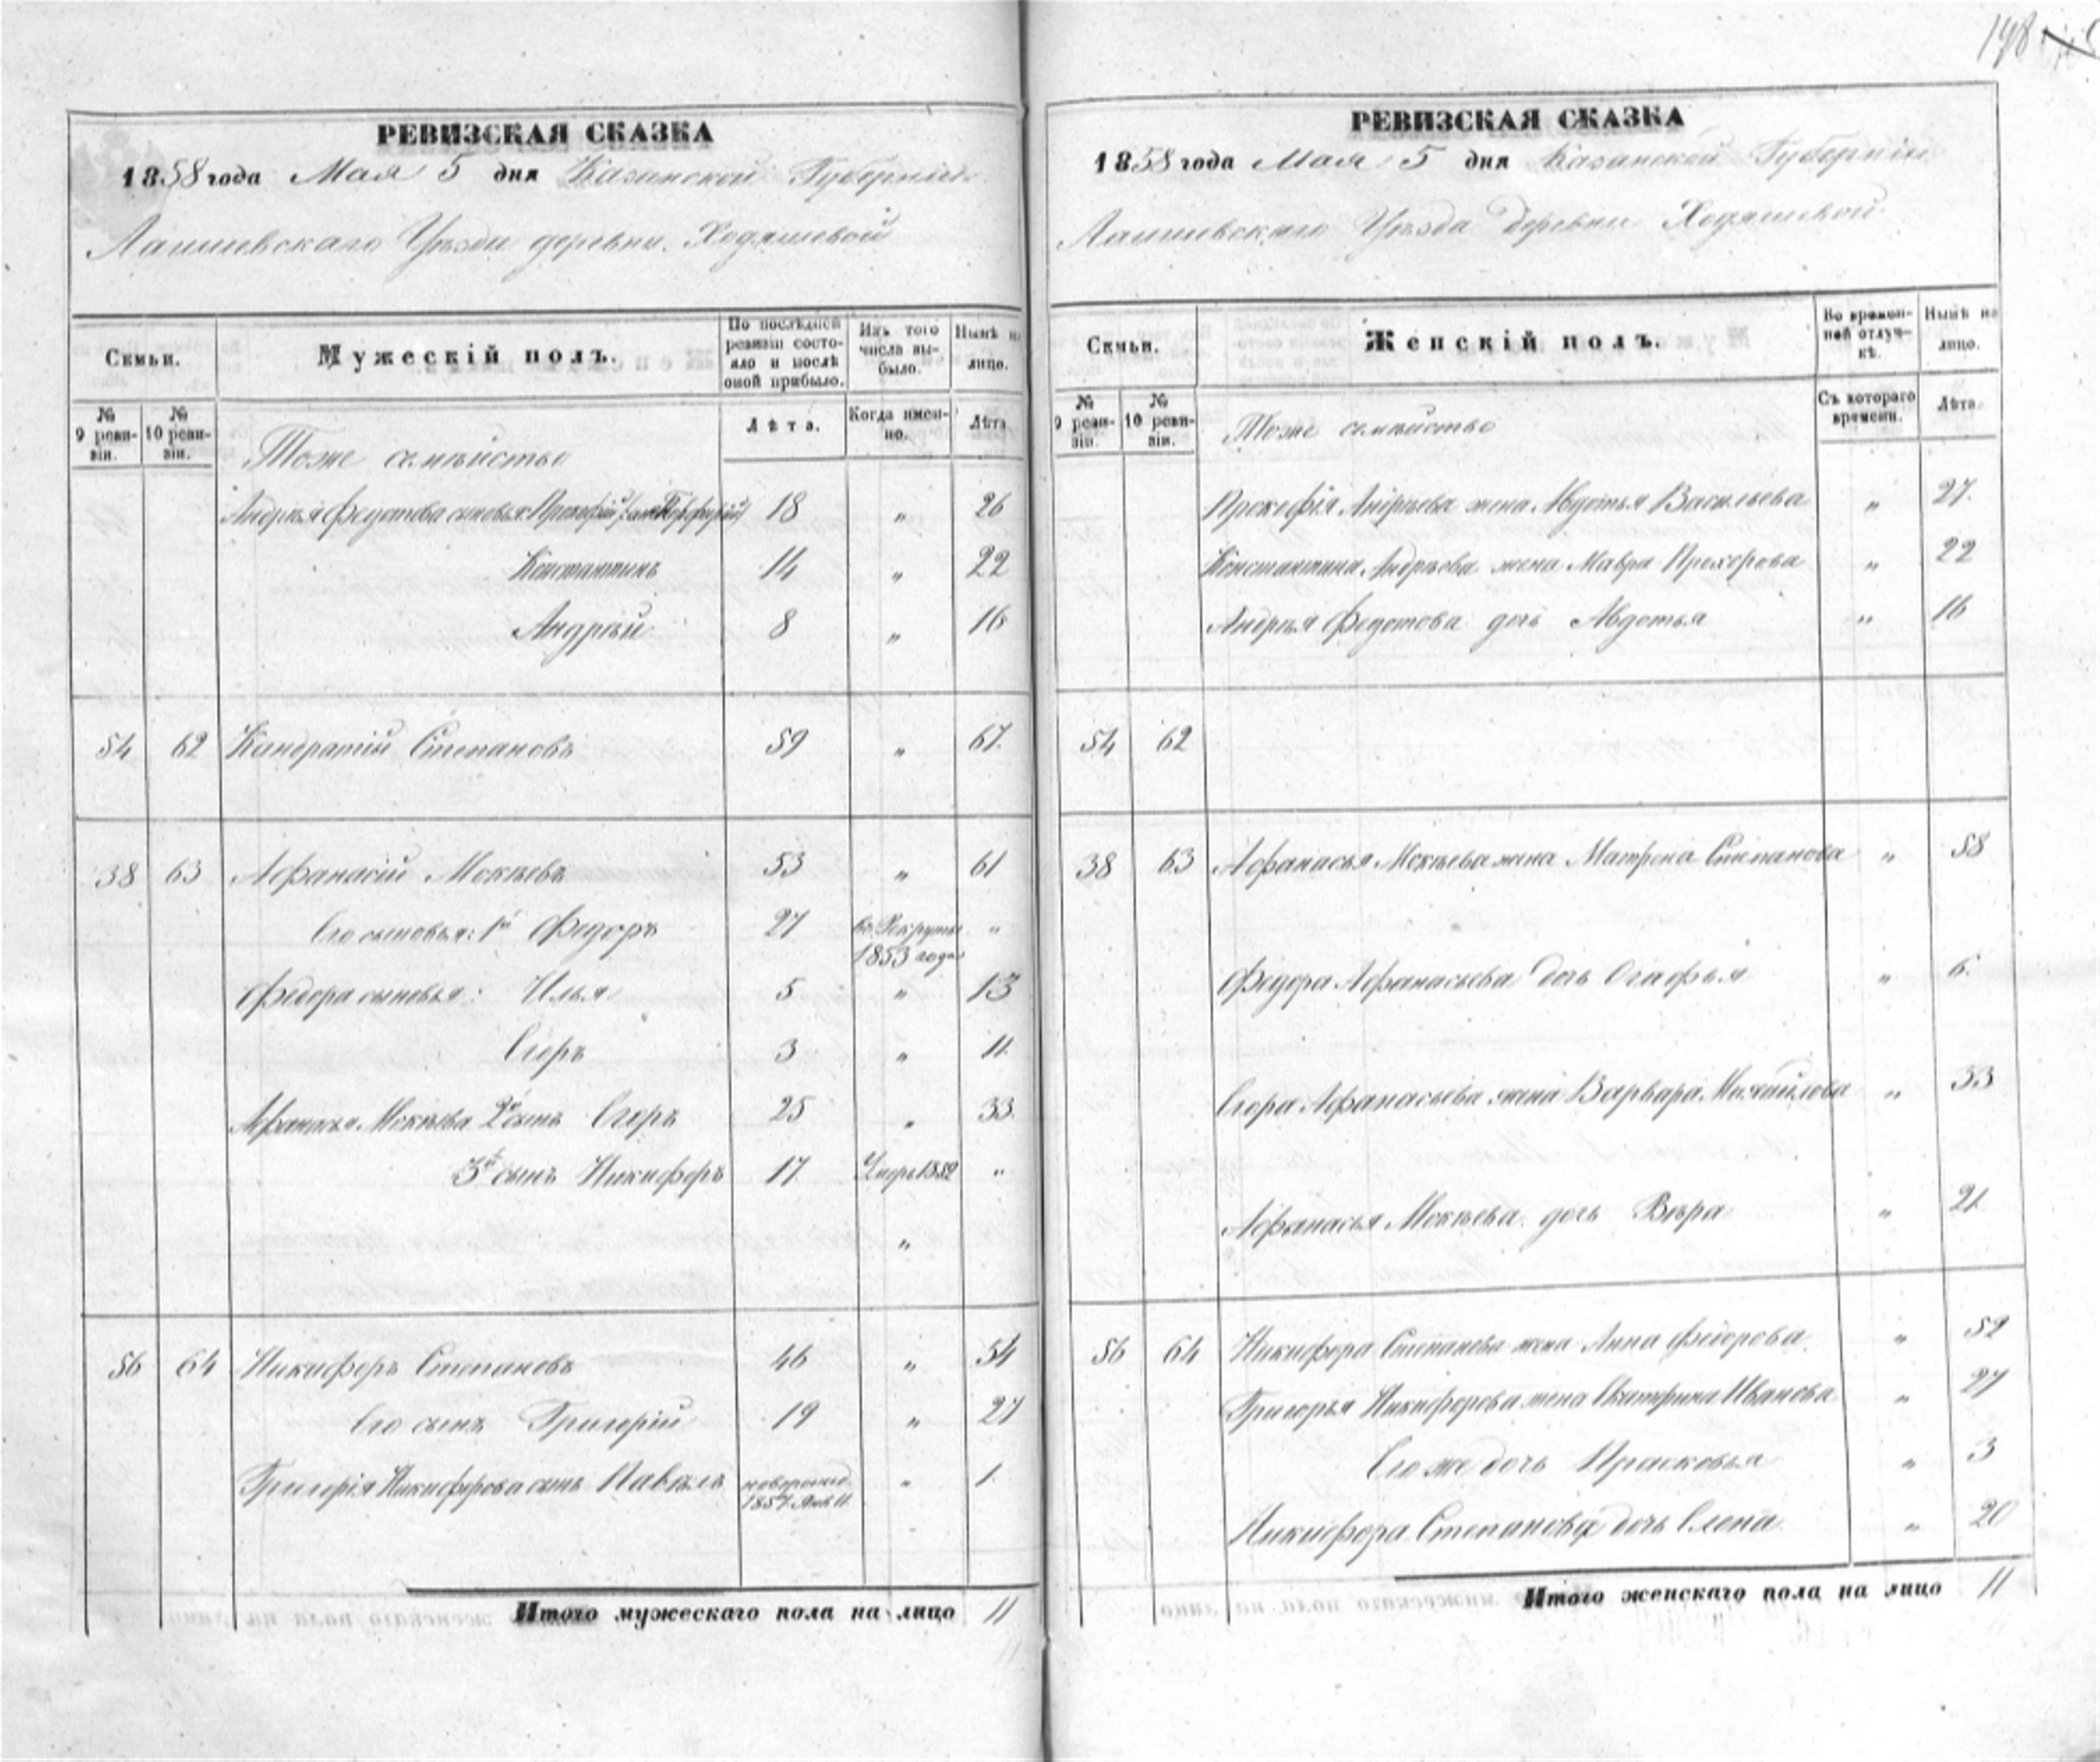 198
РЕВИЗСКАЯ СКАЗКА
1858 года Мая 5 дня Казанской Губернiи
Лаишевскаго Уѣзда деревни Ходяшевой
Семьи.
Мужескiй полъ.
По послѣдней ревизiи состояло и послѣ оной прибыло.
Изъ того числа выбыло.
Нынѣ на лицо.
№ 9 ревизiи.
№ 10 ревизiи.
Лѣта.
Когда именно.
Лѣта.
Тоже семѣйство
Андрѣя Федотова сыновья: Прокофiй 18 „ 26
Константинъ 14 „ 22
Андрѣй 8 „ 16
54 62 Кандратiй Степановъ 59 „ 67.
38 63 Афанасiй Мокѣевъ 53 „ 61
Его сыновья: 1й Федоръ 27 въ Рекруты 1853 года „
Федора сыновья: Илья 5 „ 13
Егоръ 3 „ 11.
Афанасья Мокѣева 2й сынъ Егоръ 25 „ 33.
3й сынъ Никифоръ 17 Умеръ 1852 „
„
56 64 Никифоръ Степановъ 46 „ 54
Его сынъ Григорiй 19 „ 27
Григорiя Никифорова сынъ Павѣлъ новорожд. 1857. Янв. 11. „ 1.
Итого мужескаго пола на лицо 11
РЕВИЗСКАЯ СКАЗКА
1858 года Мая 5 дня Казанской Губернiи
Лаишевскаго Уѣзда деревни Ходяшевой
Семьи.
Женскiй полъ.
Во временной отлучкѣ.
Нынѣ на лицо.
№ 9 ревизiи.
№ 10 ревизiи.
Съ котораго времени.
Лѣта.
Тоже семѣйство
Прокофiя Андрѣева жена Авдотья Васильева „ 27.
Константина Андрѣева жена Мавра Прохорова „ 22
Андрѣя Федотова дочь Авдотья „ 16
54 62
38 63 Афанасья Мокѣева жена Матрена Степанова „ 58
Федора Афанасьева дочь Огафья „ 6.
Егора Афанасьева жена Варвара Михайлова „ 33
Афанасья Мокѣева дочь Вѣра „ 21.
56 64 Никифора Степанова жена Анна Федорова. „ 52
Григорья Никифорова жена Екатерина Иванова „ 27
Его же дочь Прасковья „ 3
Никифора Степанова дочь Елена „ 20
Итого женскаго пола на лицо 11